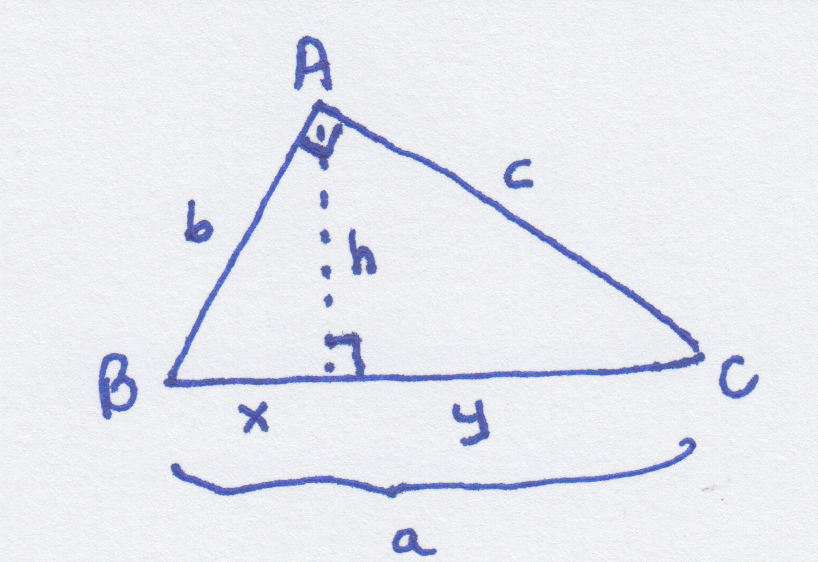 A
c
b
h
B
C
x
y
a